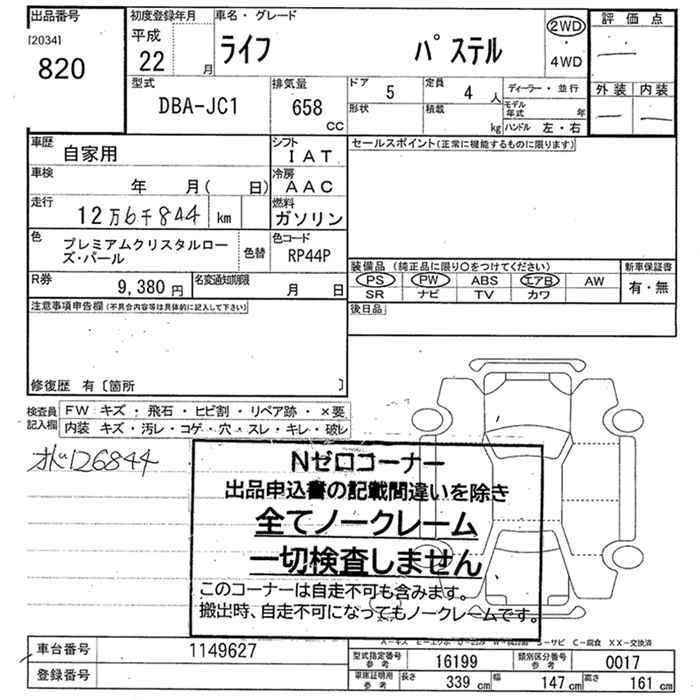 出品番号
[2034]
820
初度登録年月
平成
22
月
車名・グレード
ライフ
パステル
2WD
・
4WD
評価点
―
外装
内装
―
―
型式
DBA-JC1
排気量
658
CC
ドア
5
定員
4
人
形状
積載
kg
ディーラー・並行
モデル
年式
年
ハンドル 左・右
車歴
自家用
シフト
IAT
車検
年 月( 日)
冷房
AAC
走行
12万6千844
km
燃料
ガソリン
色
プレミアムクリスタルロー
ズ・パール
色替
色コード
RP44P
R券
9,380 円
名変通知期限
月 日
セールスポイント(正常に機能するものに限ります)
装備品 (純正品に限り○をつけてください)
PS
PW
ABS
エアB
AW
SR
ナビ
TV
カワ
新車保証書
有・無
後日品
注意事項申告欄(不具合内容等は具体的に記入して下さい)
修復歴 有〔箇所 〕
検査員
記入欄
FW キズ・飛石・ヒビ割・リペア跡・×要
内装 キズ・汚レ・コゲ・穴・スレ・キレ・破レ
オド126844
Nゼロコーナー
出品申込書の記載間違いを除き
全てノークレーム
一切検査しません
このコーナーは自走不可も含みます。
搬出時、自走不可になってもノークレームです。
S-サビ C-腐食 XX-交換済
車台番号
1149627
登録番号
型式指定番号
参考
16199
類別区分番号
参考
0017
車庫証明用
参考
長さ
339 cm
幅
147 cm
高さ
161 cm